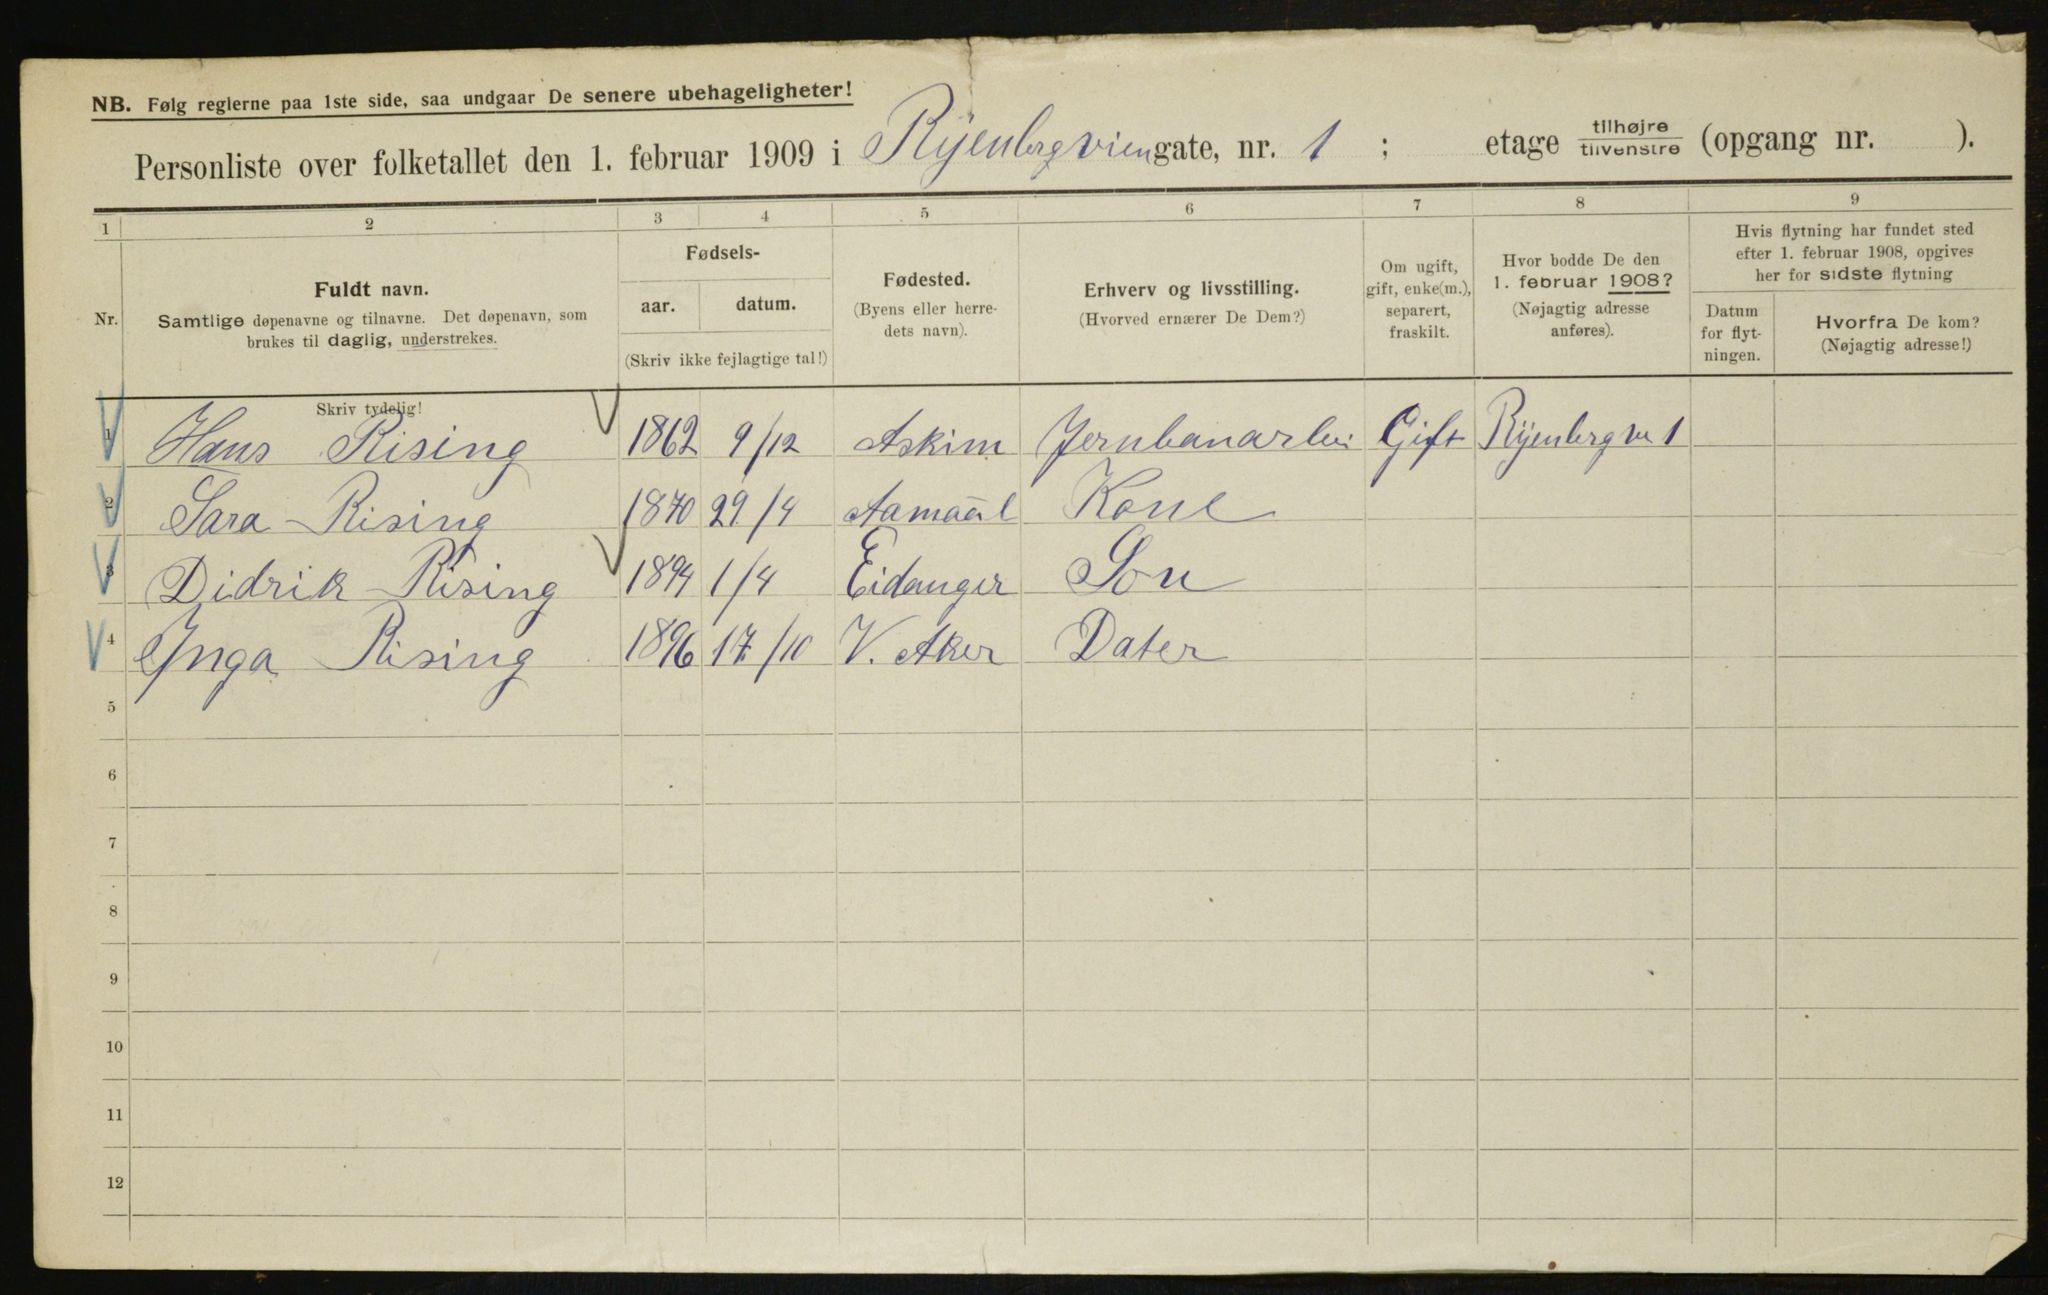 NB. Følg reglerne paa 1ste side, saa undgaar De senere ubehageligheter!
Personliste over folketallet den 1. februar 1909 i Ryenbergvien gate, nr. 1 ; etage tilhøjre tilvenstre (opgang nr. ).
1 2 3 4 5 6 7 8 9
Nr. Fuldt navn. Samtlige døpenavne og tilnavne. Det døpenavn, som brukes til daglig, understrekes.
Fødsels-
aar. datum.
(Skriv ikke fejlagtige tal!)
Fødested. (Byens eller herredets navn).
Erhverv og livsstilling. (Hvorved ernærer De Dem?)
Om ugift, gift, enke(m.), separert, fraskilt.
Hvor bodde De den 1. februar 1908? (Nøjagtig adresse anføres).
Hvis flytning har fundet sted efter 1. februar 1908, opgives her for sidste flytning
Datum for flytningen.
Hvorfra De kom? (Nøjagtig adresse!)
Skriv tydelig!
1 Hans Rising 1862 9/12 Askim Jernbanarbei Gift Ryenbergve 1
2 Sara Rising 1870 29/4 Aamaal Kone
3 Didrik Rising 1894 1/4 Eidanger Son
4 Ynga Rising 1896 17/10 V. Aker Dater
5
6
7
8
9
10
11
12